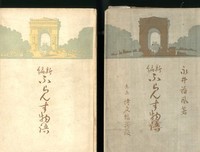 新編
ふらんす物語
永井荷風著
新編
ふらんす物語